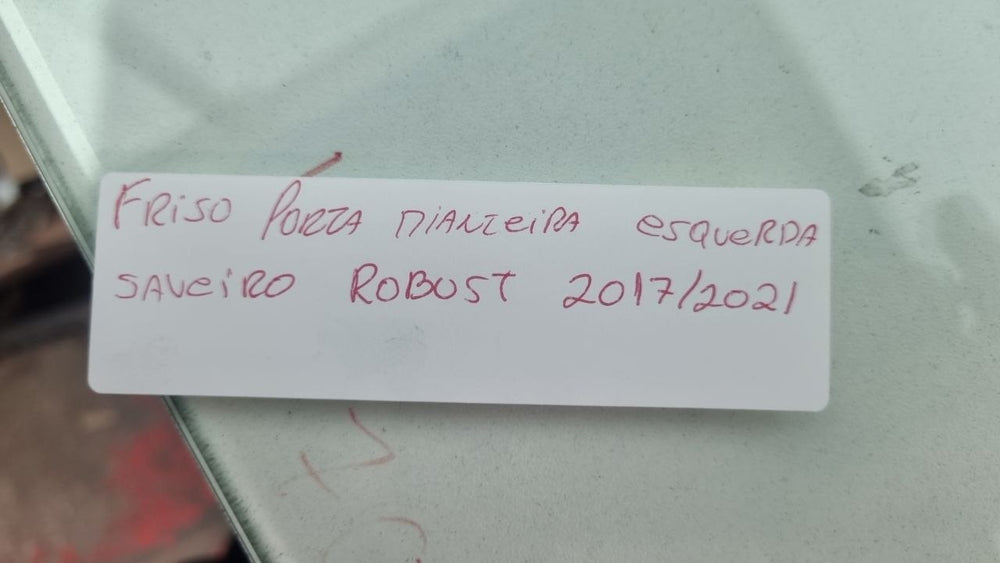 FRISO PORTA DIANTEIRA ESQUERDA
SAVEIRO ROBUST 2017/2021